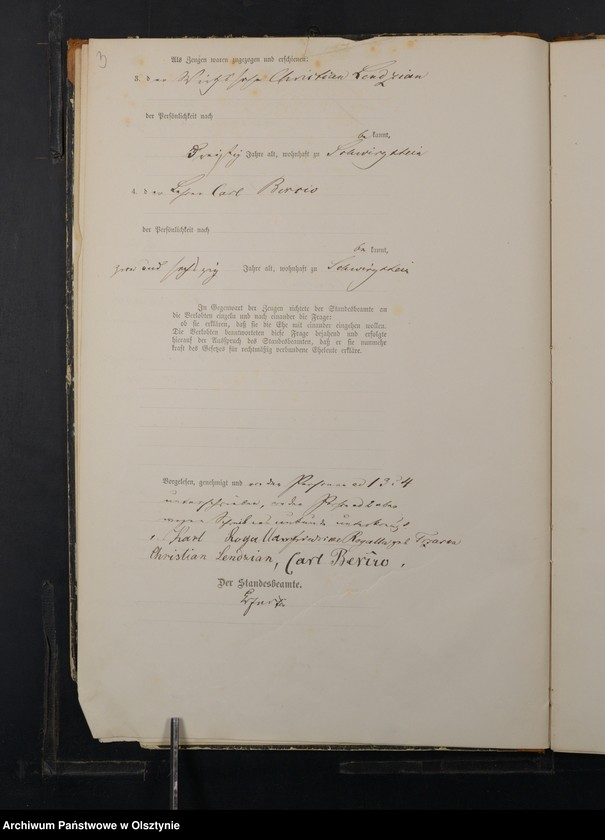 3
Als Zeugen waren zugezogen und erschienen:
3. der Wirthssohn Christian Lendzian
der Persönlichkeit nach
bekannt,
dreißig Jahre alt, wohnhaft zu Schwirgstein
4. der Lehrer Carl Bercio
der Persönlichkeit nach
bekannt,
zwei und sechszig Jahre alt, wohnhaft zu Schwirgstein
In Gegenwart der Zeugen richtete der Standesbeamte an
die Verlobten einzeln und nach einander die Frage:
ob sie erklären, daß sie die Ehe mit einander eingehen wollen.
Die Verlobten beantworteten diese Frage bejahend und erfolgte
hierauf der Ausspruch des Standesbeamten, daß er sie nunmehr
kraft des Gesetzes für rechtmäßig verbundene Eheleute erkläre.
Vorgelesen, genehmigt und von den Personen ad 1 3 4
unterschrieben, von der
wegen Schreibensunkunde unterkreuzt
Karl Rogalla
Christian Lendzian, Carl Bercio.
Der Standesbeamte.
Archiwum Państwowe w Olsztynie